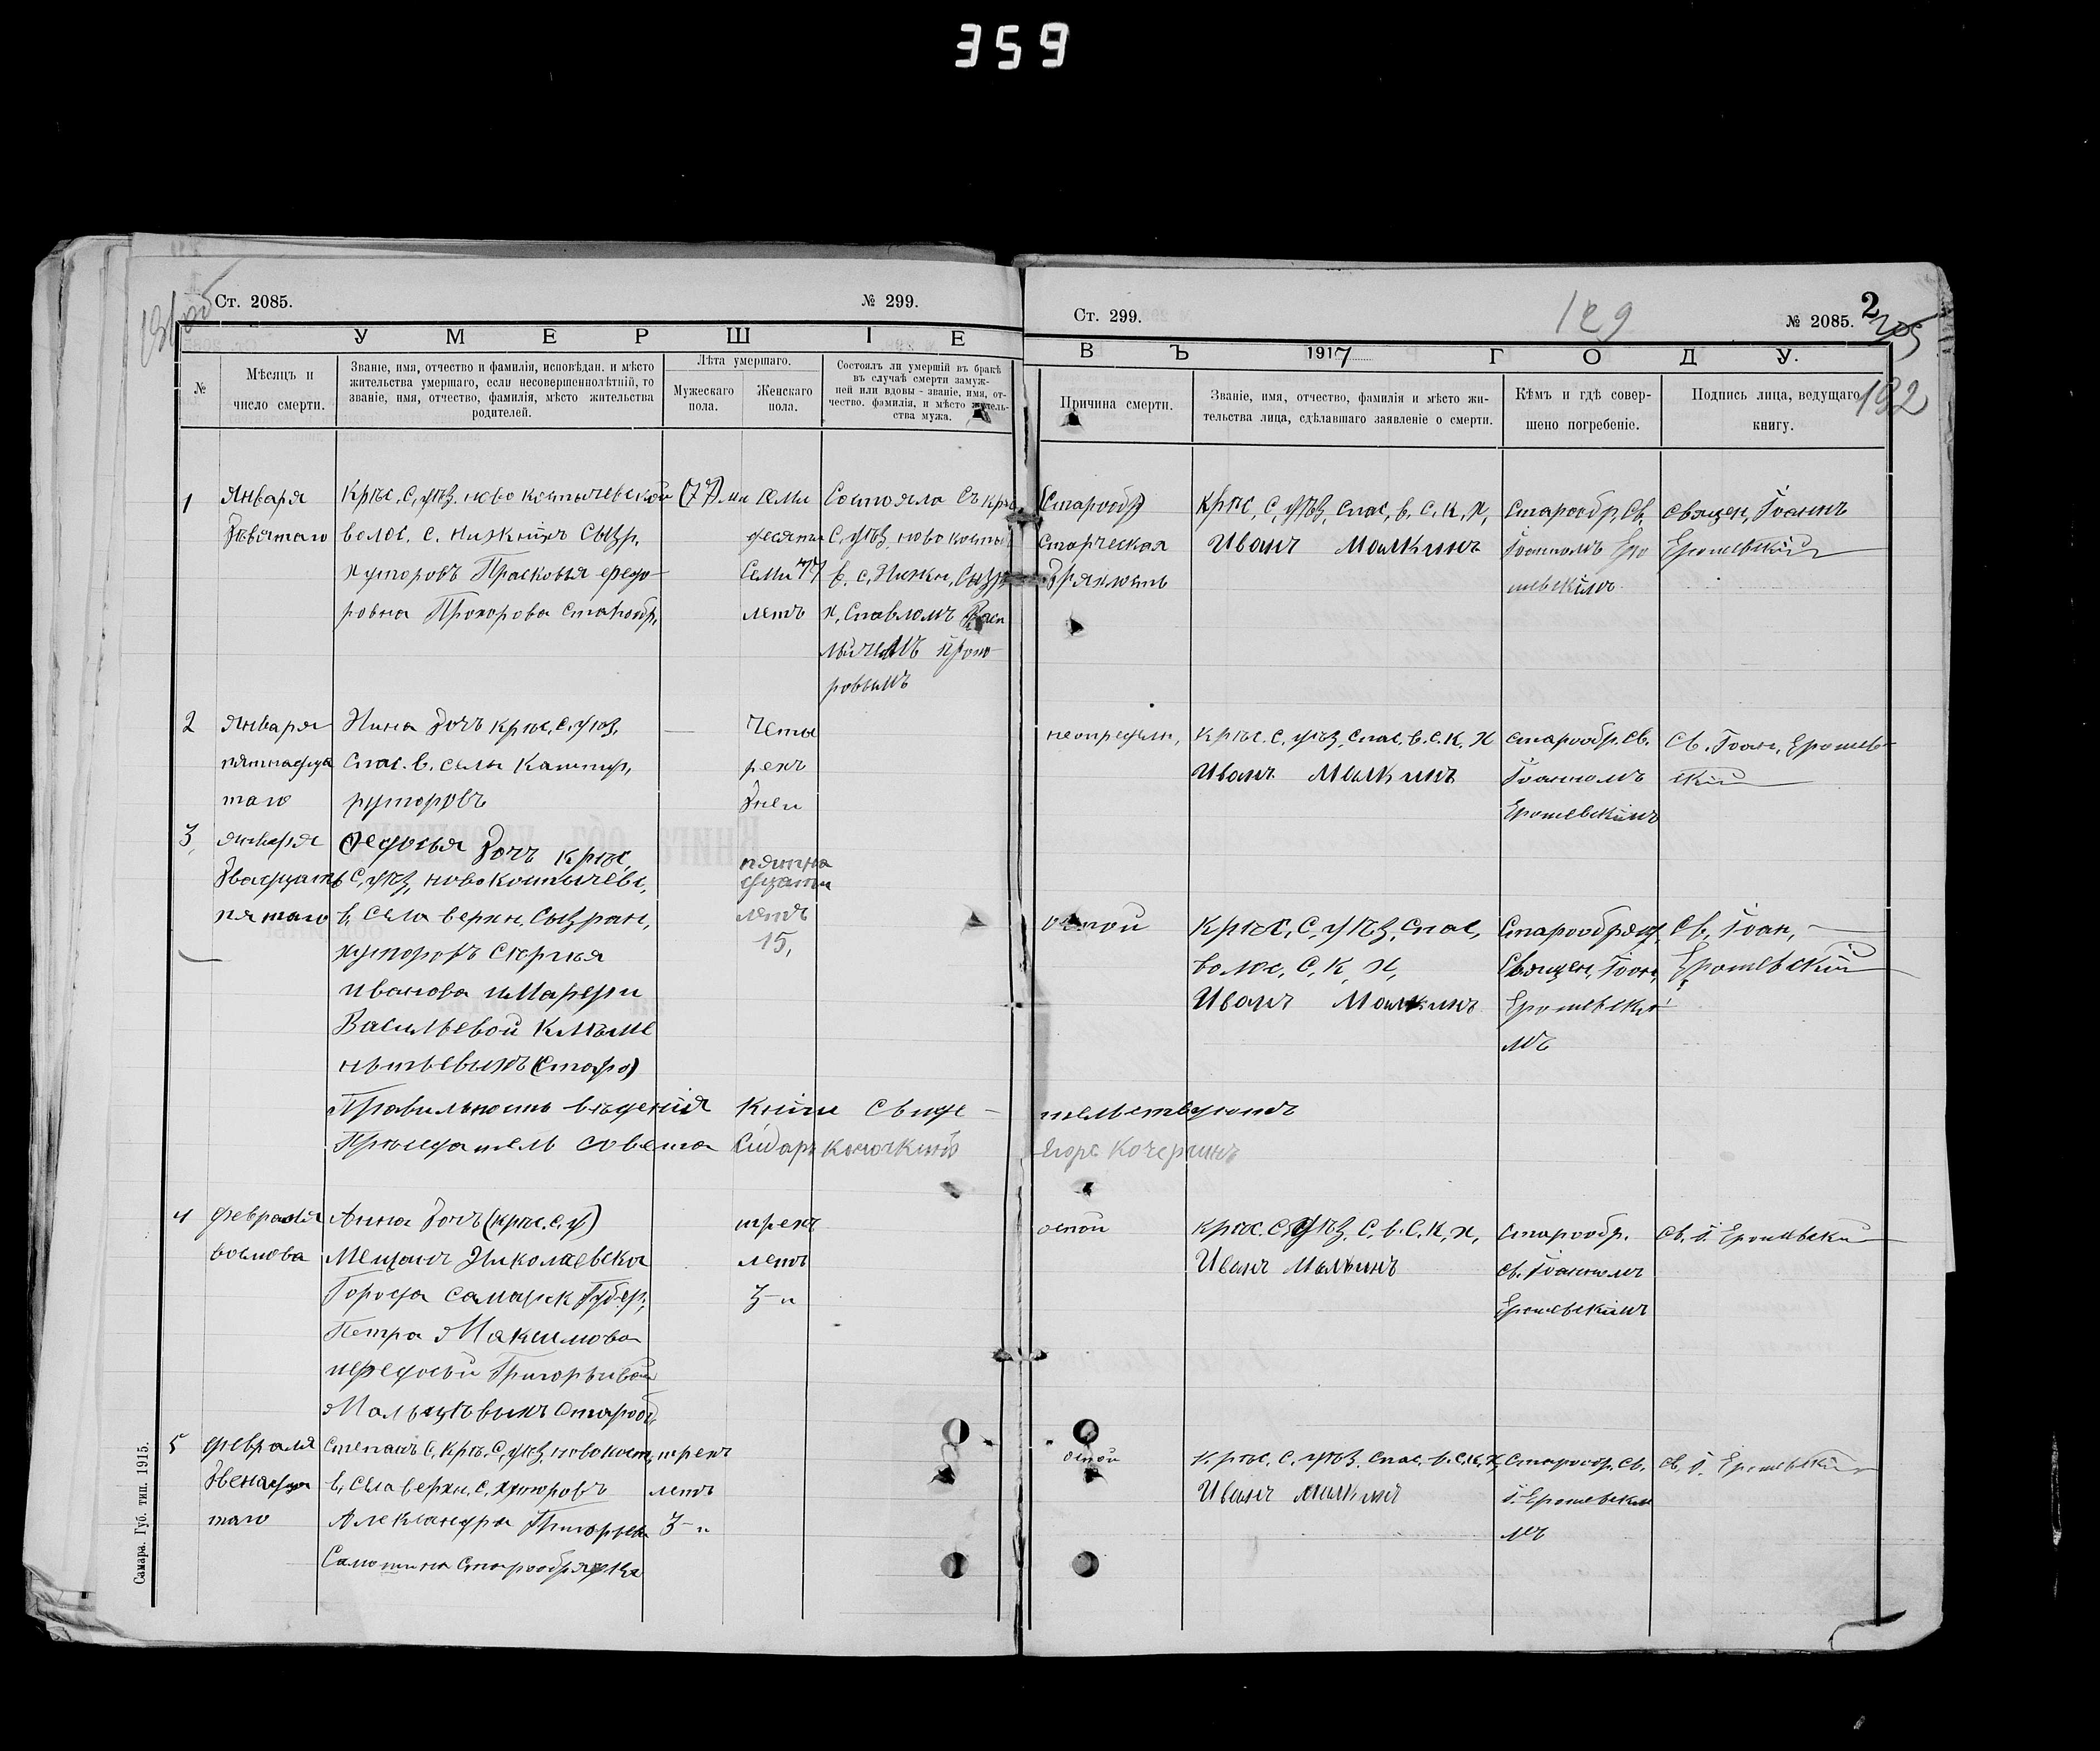 359
Ст. 2085.
№ 299.
У М Е Р Ш І Е
№
Мѣсяцъ и число смерти.
Званіе, имя, отчество и фамилія, исповѣдан. и мѣсто
жительства умершаго, если несовершеннолѣтній, то
званіе, имя, отчество, фамилія, мѣсто жительства
родителей.
Лѣта умершаго.
Мужескаго пола.
Женскаго пола.
Состоялъ ли умершій въ бракѣ
въ случаѣ смерти замуж-
ней или вдовы - званіе, имя, от-
чество. фамилія, и мѣсто жытель-
ства мужа.
Ст. 299.
129
№ 2085.
2
192
В Ъ 1917 Г О Д У.
Причина смерти.
Званіе, имя, отчество, фамилія и мѣсто жи-
тельства лица, сдѣлавшаго заявленіе о смерти.
Кѣмъ и гдѣ совер-
шено погребеніе.
Подпись лица, ведущаго
книгу.
1
Января
Девятаго
Крес. С. уѣз. ново костычевской
волос. с. Нижнихъ Сызр.
хуторовъ Прасковья федо-
ровна Прохорова старообр,
(77) ми семи
десяти
семи 77
летъ
Состояла съ крес
С. уѣз. ново косты
в. с. Нижн, Сызр
х, Спавломъ Васи
льичемъ прохо-
ровымъ
(Старообр)
Старческая
Дряхлость
Крес, С, уѣз, Спас, в. С. К, Х,
Иванъ Малкинъ
Старообр, Св.
Іоанномъ Еро
шевскимъ
Священ, Іоаннъ
Ерошевскій
2
Января
пятнадца
таго
Нина дочъ крес. С. уѣз.
Спас. в. селы Кашпир,
хуторовъ
Четы
рехъ
дней
неопредѣл,
крес. С. уѣз, Спас, в. С. К. Х
Иванъ Малкинъ
старообр. Св.
Іоанномъ
Ерошевскимъ
Св. Іоан, Ерошев-
скій
3,
января
Двадцать
пятаго
Федосья Дочъ крес,
С, уѣз, новокостычевс,
в, села верхн. Сызран,
хуторовъ Сергия
иванова иМарфи
Васильевой Клѣме
нтьевыхъ (старо)
пятна
дцати
летъ
15,
оспой
крес, С, уѣз, Спас,
волос, С, К, Х,
Иванъ Малкинъ
Старообряд,
Священ, Іоан,
Ерошевски
мъ
Св, Іоан,
Ерошевскій
Правильность вѣденія Книги Свиде-тельствуютъ
Прѣдседатель совета Сидаръ Егоръ Кочергинъ
4
февраля
восмова
Анна дочъ (крес. с. у)
Мещанъ Николаевска
Города Самарск Губер,
Петра Максимова
Григорьивой
Мальцевыхъ Старооб
трехъ
летъ
3-и
оспой
крес. С. уѣз, С. в. С, К, Х,
Иванъ Малкинъ
старообр.
св. Іоанномъ
Ерошевскимъ
Св. І. Ерошевски
5
февраля
двенадца
таго
Степанъ С. Крес. С, уѣз, новокост,
в, села верхн. С, хуторовъ
Александра Григорьев
Самотина Старообрядка
трехъ
летъ
3-и
оспой
крес. С. уѣз. Спас. в. С. К, Х,
Иванъ Малкинъ
Старообр. Св.
І. Ерошевски
мъ
Св. І. Ерошевски
Самара. Губ. тип. 1915.